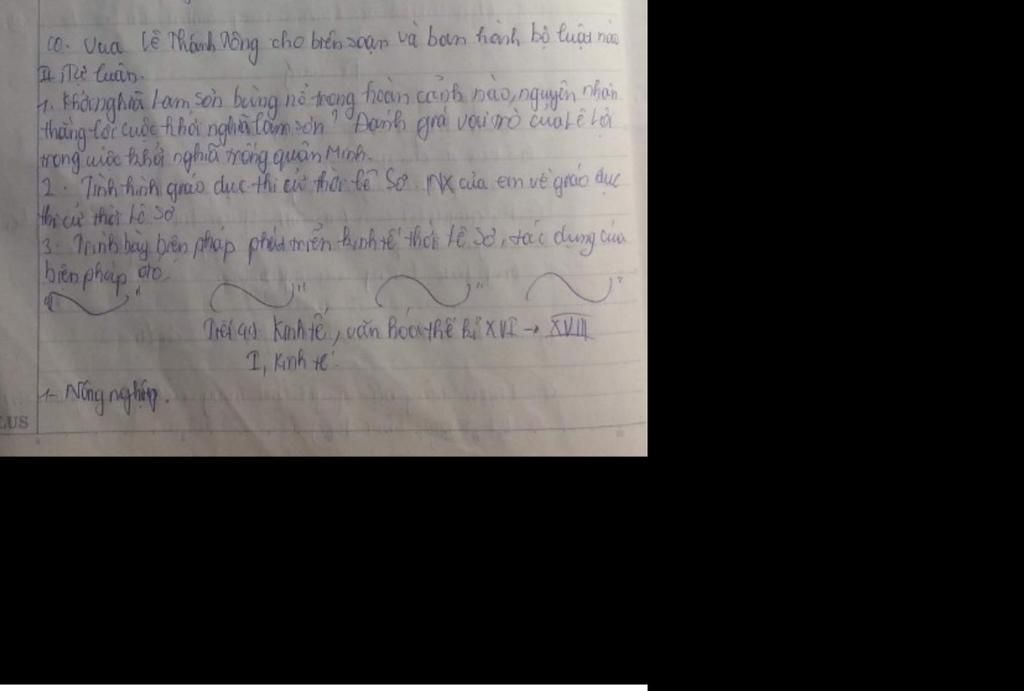 10. Vua Lê Thánh Tông cho biên soạn và ban hành bộ luật nào
II. Tự luận.
1. Khởi nghĩa Lam Sơn bùng nổ trong hoàn cảnh nào, nguyên nhân
thắng lợi cuộc khởi nghĩa Lam Sơn? Đánh giá vai trò của Lê Lợi
trong cuộc khởi nghĩa trống quân Minh.
2. Tình hình giáo dục thi cử thời Lê Sơ. NX của em về giáo dục
thi cử thời Lê Sơ
3. Trình bày biện pháp phát triển kinh tế thời Lê Sơ, tác dụng của
biện pháp đó.
Tiết 49. Kinh tế, văn hóa thế kỉ XVI → XVIII
I, Kinh tế.
1- Nông nghiệp.
LUS